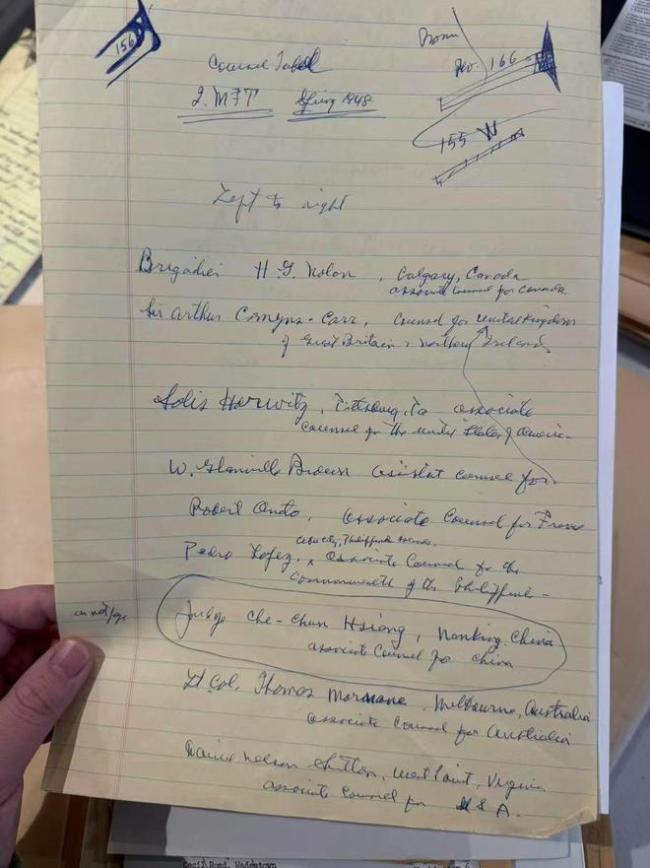 156
Counsel Table
I.M.F.T Spring 1948
Room
No. 166
155 W
Left to right
Brigadier H G. Nolan, Calgary, Canada
associate counsel for Canada
Sir Arthur Comyns-Carr, Counsel for United Kingdom
of Great Britain & Northern Ireland
Solis Horwitz, Pittsburg, Pa associate
counsel for the United States of America
W. Glanville Brown assistant counsel for
Robert Oneto, associate Counsel for France
Pedro Lopez, x associate Counsel for the
Commonwealth of the Philippine
Judge Che-Chun Hsiang, Nanking, China
associate Counsel for China
Lt Col. Thomas Mornane, Melbourne, Australia
associate Counsel for Australia
Nelson Sutton, West Point, Virginia
associate Counsel for U S A.
Cecil Road, Wadestown